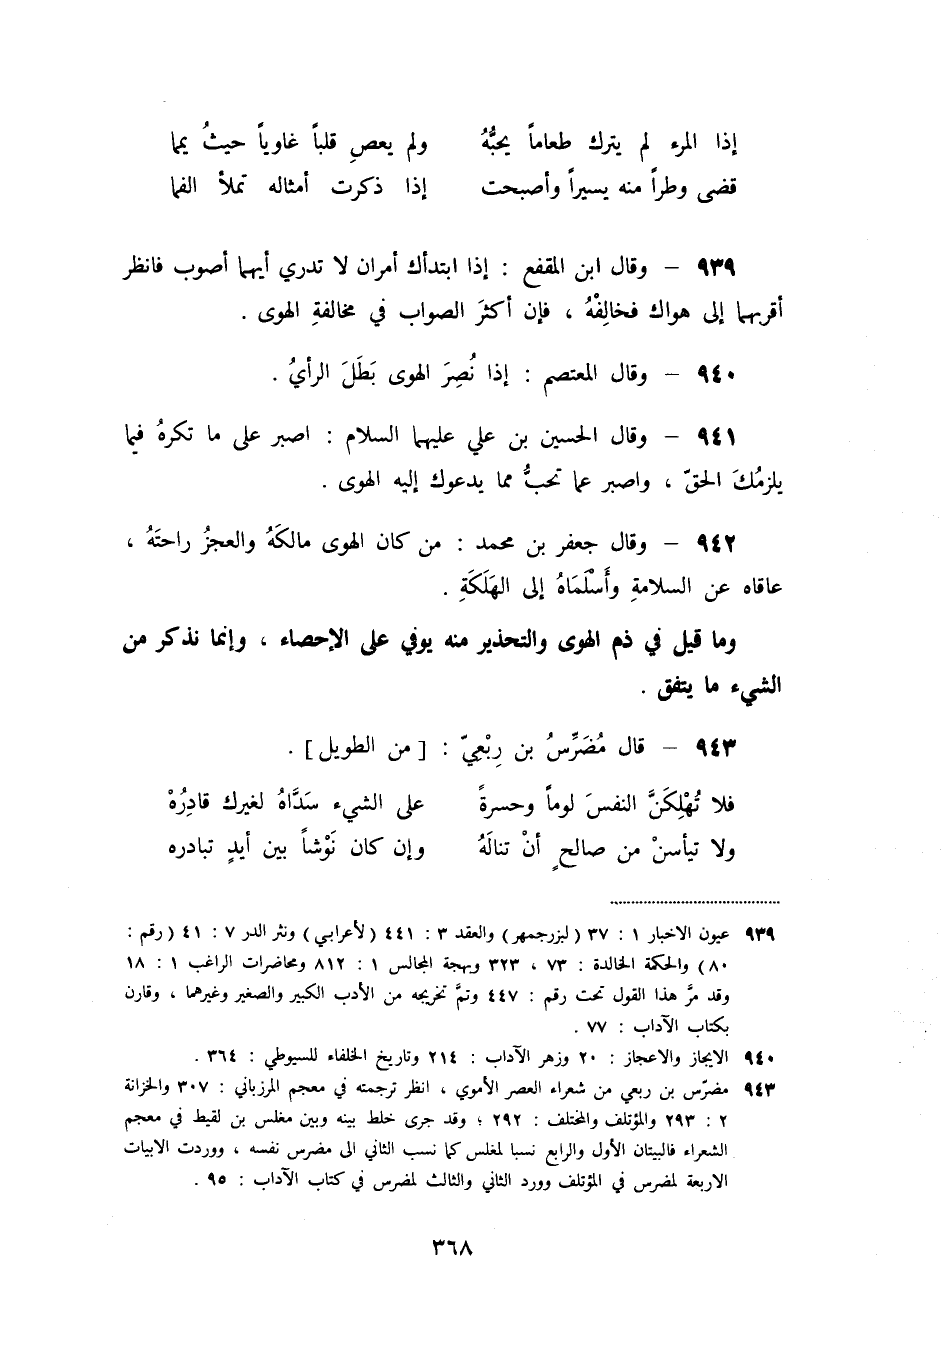 إذا المرء لم يترك طعاماً يحبُّهُ ولم يعصِ قلباً غاوياً حيثُ يمما
قضى وطراً منه يسيراً وأصبحت إذا ذكرت أمثاله تملأ الفما
٩٣٩ – وقال ابن المقفع : إذا ابتدأك أمران لا تدري أيهما أصوب فانظر
أقربهما إلى هواك فخالِفْهُ ، فإن أكثرَ الصواب في مخالفةِ الهوى .
٩٤٠ – وقال المعتصم : إذا نُصِرَ الهوى بَطَلَ الرأيُ .
٩٤١ – وقال الحسين بن علي عليهما السلام : اصبر على ما تكرهُ فيما
يلزمُكَ الحقّ ، واصبر عما تحبُّ مما يدعوك إليه الهوى .
٩٤٢ – وقال جعفر بن محمد : من كان الهوى مالكَهُ والعجزُ راحتَهُ ،
عاقاه عن السلامةِ وأَسْلَمَاهُ إلى الهَلَكَةِ .
وما قيل في ذم الهوى والتحذير منه يوفي على الإحصاء ، وإنما نذكر من
الشيء ما يتفق .
٩٤٣ – قال مُضَرِّسُ بن رِبْعِيّ : [ من الطويل ] .
فلا تُهْلِكَنَّ النفسَ لوماً وحسرةً على الشيء سَدَّاهُ لغيرك قادِرُهْ
ولا تيأسنْ من صالحٍ أنْ تنالَهُ وإن كان نَوْشاً بين أيدٍ تبادره
٩٣٩ عيون الاخبار ١ : ٣٧ ( لبزرجمهر ) والعقد ٣ : ٤٤١ ( لأعرابي ) ونثر الدر ٧ : ٤١ ( رقم :
٨٠ ) والحكمة الخالدة : ٧٣ ، ٣٢٣ وبهجة المجالس ١ : ٨١٢ ومحاضرات الراغب ١ : ١٨
وقد مرَّ هذا القول تحت رقم : ٤٤٧ وتمَّ تخريجه من الأدب الكبير والصغير وغيرهما ، وقارن
بكتاب الآداب : ٧٧ .
٩٤٠ الايجاز والاعجاز : ٢٠ وزهر الآداب : ٢١٤ وتاريخ الخلفاء للسيوطي : ٣٦٤ .
٩٤٣ مضرّس بن ربعي من شعراء العصر الأموي ، انظر ترجمته في معجم المرزباني : ٣٠٧ والخزانة
٢ : ٢٩٣ والمؤتلف والمختلف : ٢٩٢ ؛ وقد جرى خلط بينه وبين مغلس بن لقيط في معجم
الشعراء فالبيتان الأول والرابع نسبا لمغلس كما نسب الثاني الى مضرس نفسه ، ووردت الابيات
الاربعة لمضرس في المؤتلف وورد الثاني والثالث لمضرس في كتاب الآداب : ٩٥ .
٣٦٨